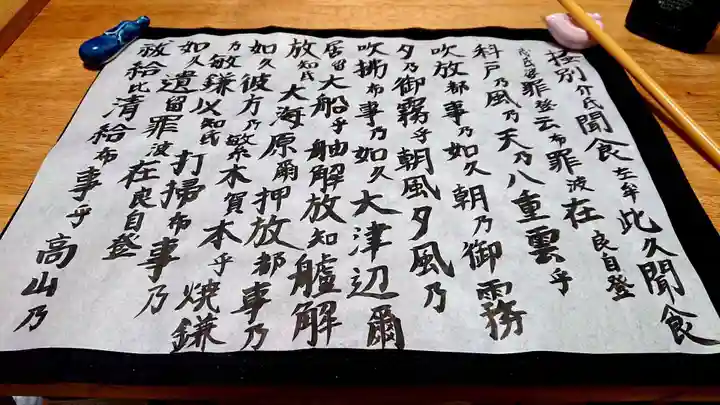 掻別介氐聞食左牟此久聞食
氐波罪登云布罪波在良自登
科戸乃風乃天乃八重雲乎
吹放都事乃如久朝乃御霧
夕乃御霧乎朝風夕風乃
吹拂布事乃如久大津辺爾
居留大船乎舳解放知艫解
放知氐大海原爾押放都事乃
如久彼方乃繁木賀本乎焼鎌
乃敏鎌以知氐打掃布事乃
如久遺留罪波在良自登
祓給比清給布事乎高山乃